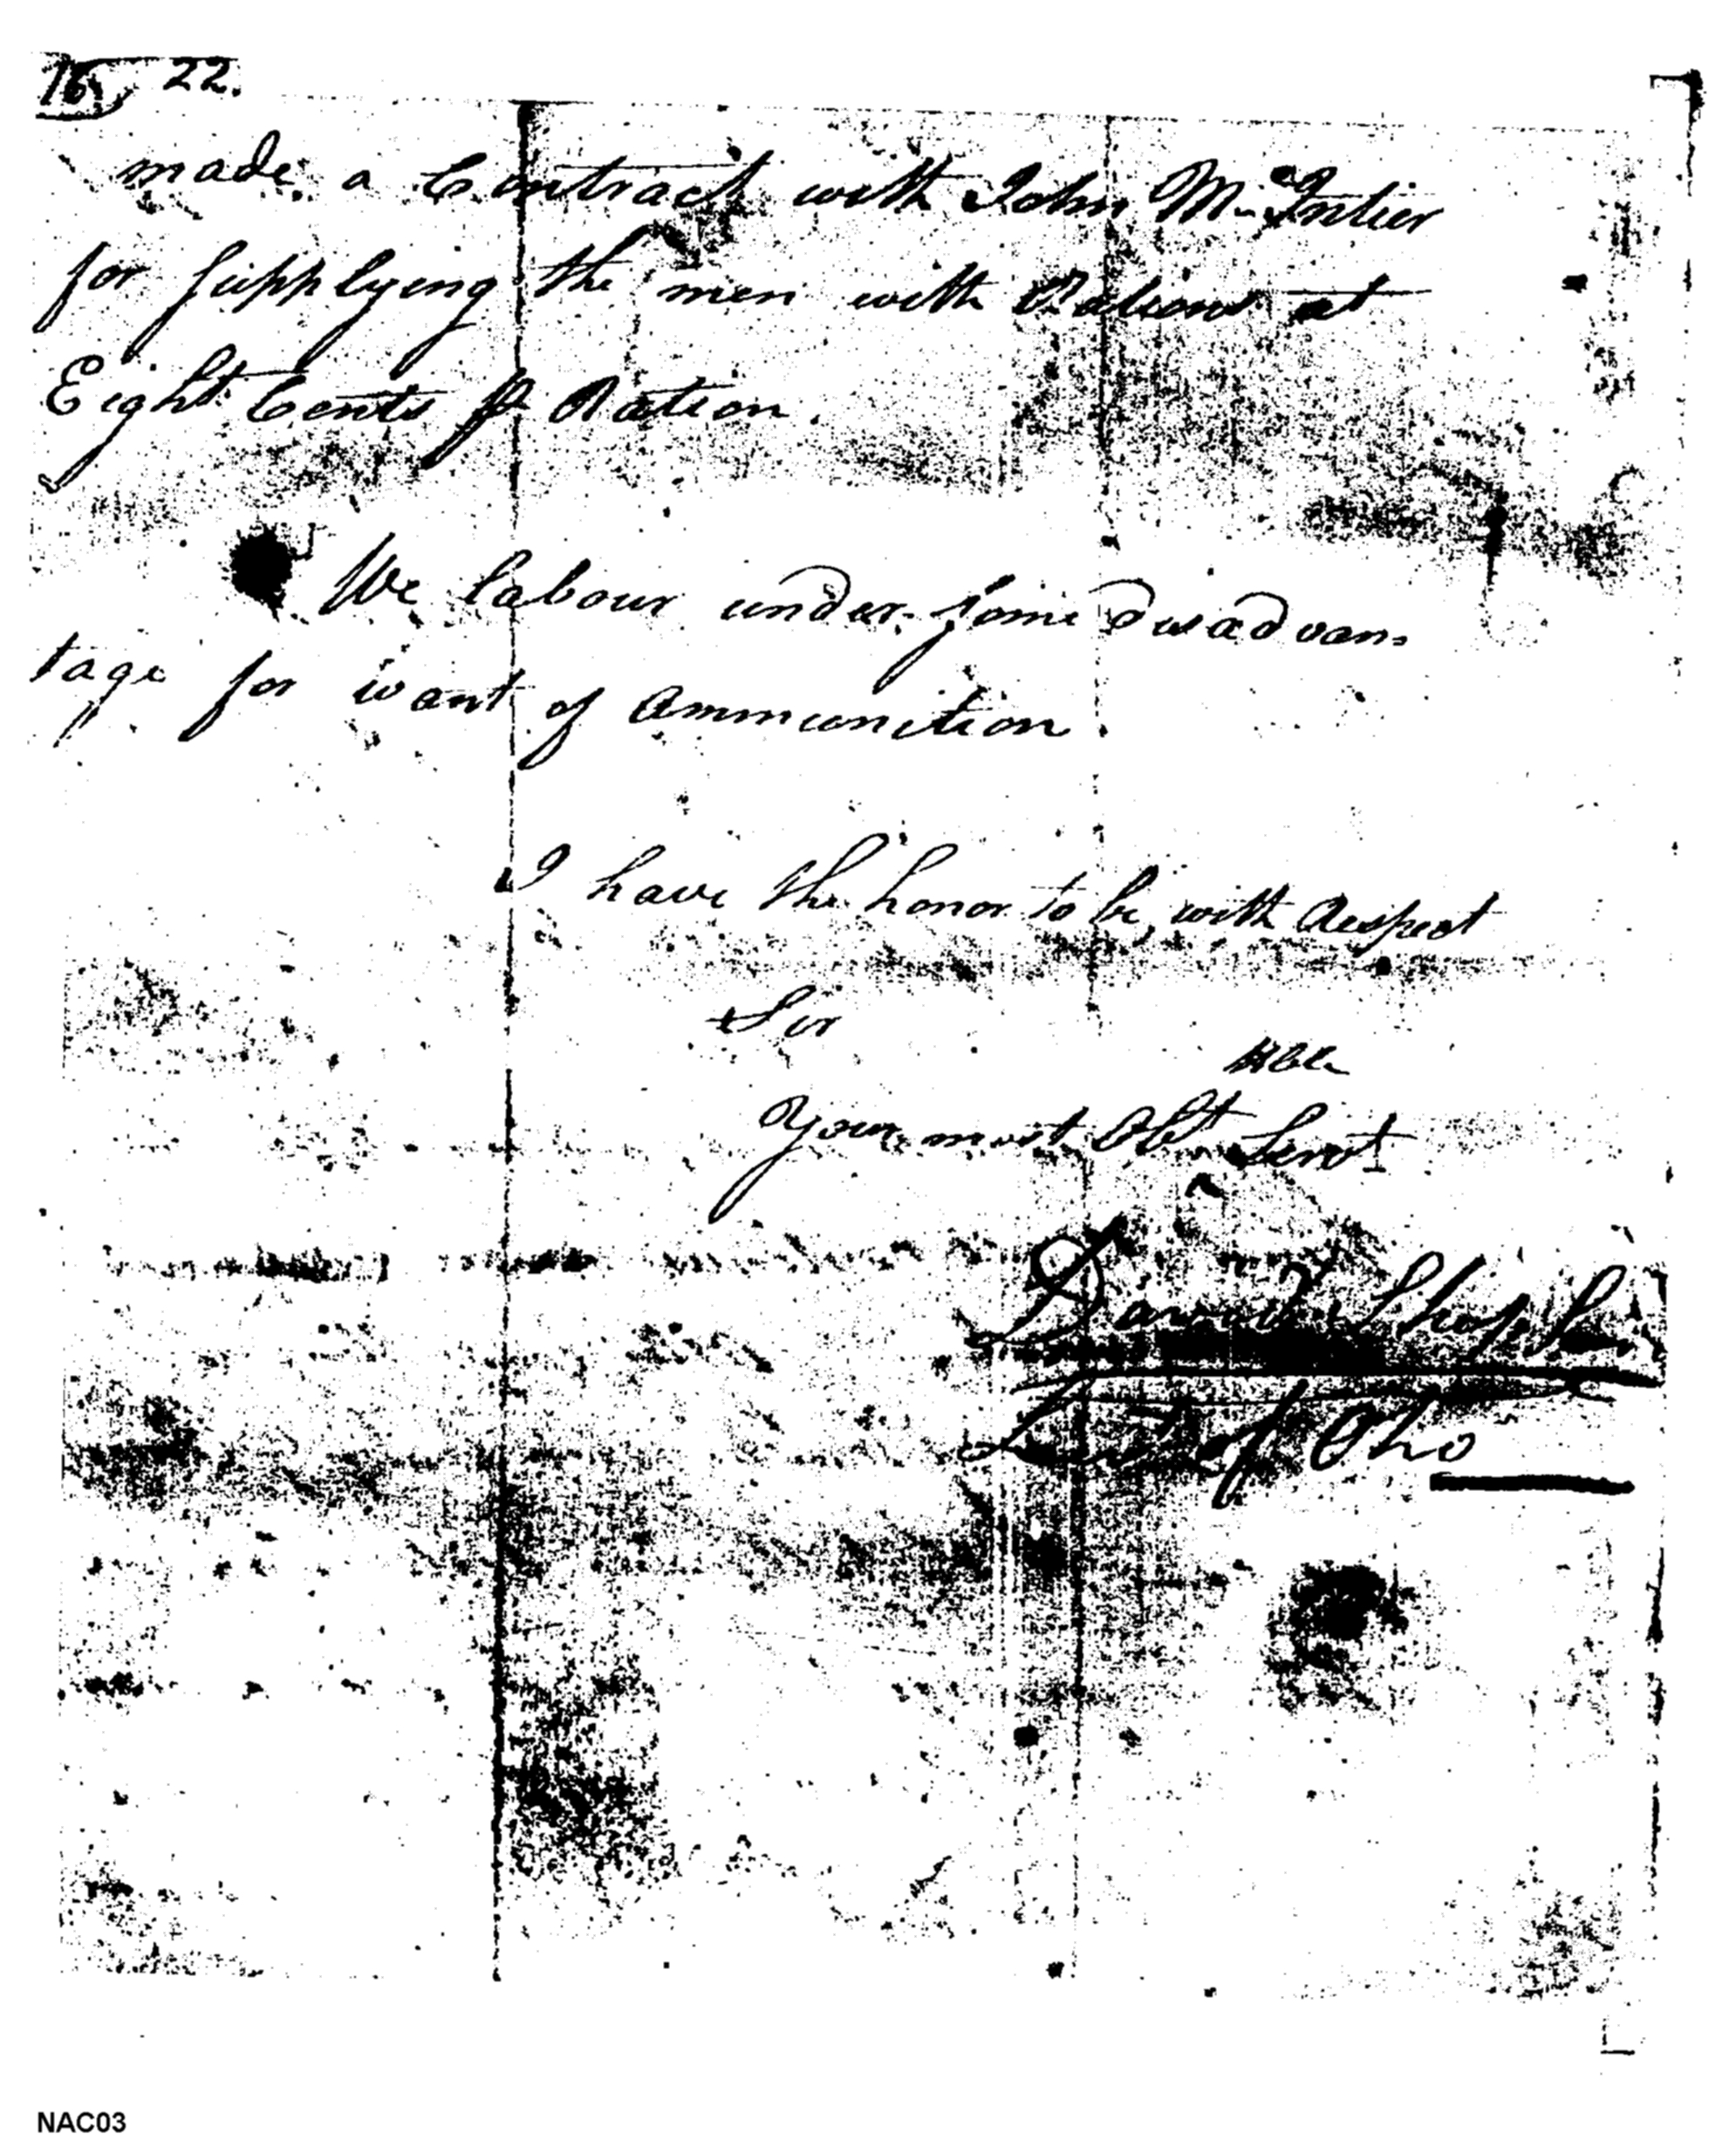 16 22.
made a Contract with John McIntier
for supplying the men with Rations at
Eight Cents ⅌ Ration.
We labour under some disadvan-
tage for want of Ammunition.
I have the honor to be with Respect
Sir
Hble
Your most Obt Servt
David Shepherd
Lieut of Oho
NAC03